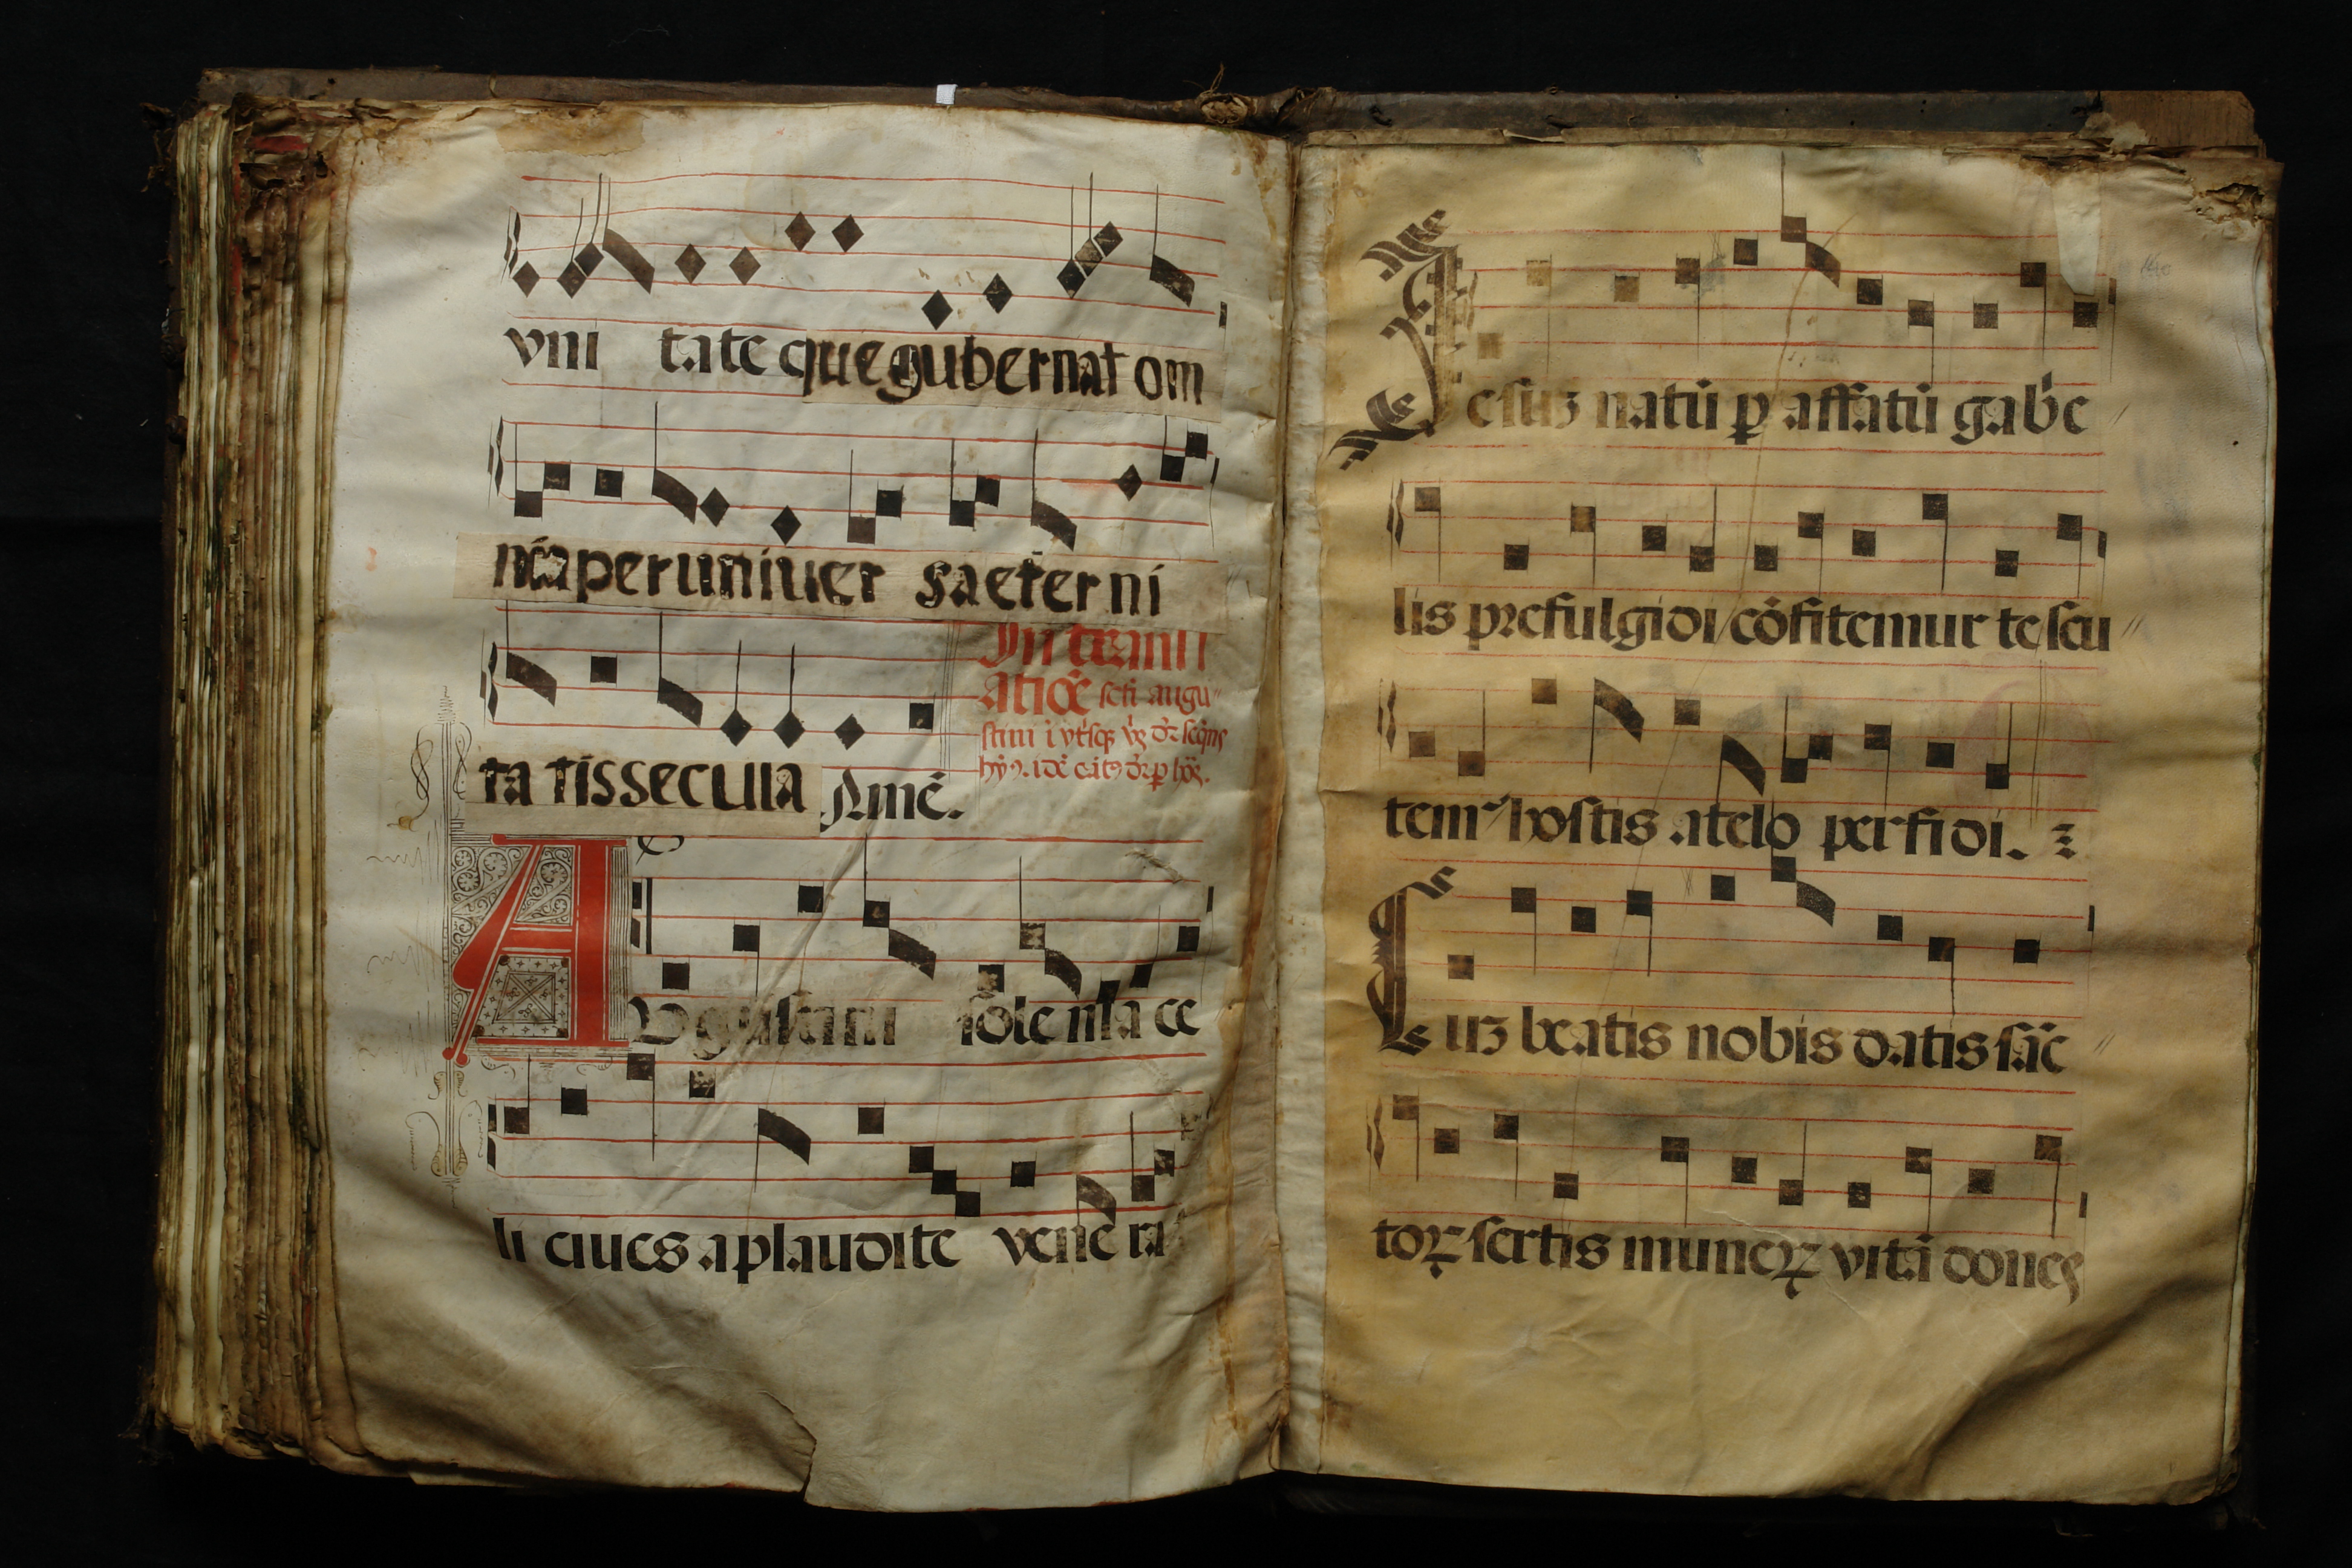 vni tate que gubernat om
nia per univer saeter ni
ta tis secula Amē.
In transl
atiōe scti augu
stini
AVgustini sōlenīa ce
li ciues aplaudite vene ra
Iesuȝ natū ꝑ affatū gab'e
lis prefulgidi cōfitemur te seu
tem hostis atelo perfidi.
Cuȝ beatis nobis datis sāc
toꝝ sertis muneꝝ vitā dones